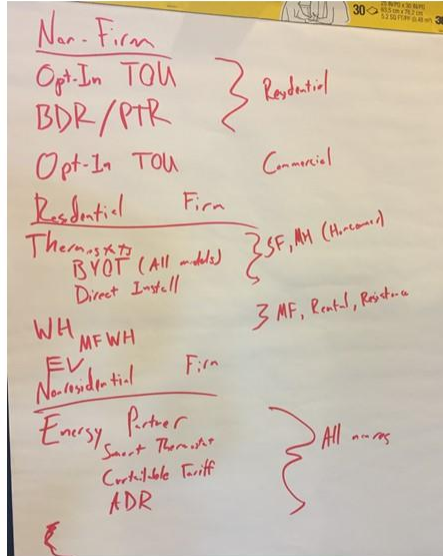 30
Non-Firm
Opt-In TOU
BDR/PTR
Residential
Opt-In TOU Commercial
Residential Firm
Thermostats
BYOT (All models)
Direct Install
SF, MH (Homeowner)
MF, Rental, Resistance
WH
MFWH
EV
Nonresidential Firm
Energy Partner
Smart Thermostat
Curtailable Tariff
ADR
All nonres